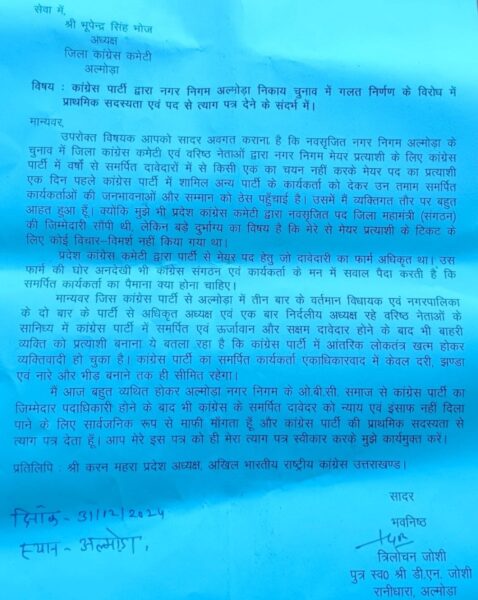 सेवा में,
श्री भूपेन्द्र सिंह भोज
अध्यक्ष
जिला कांग्रेस कमेटी
अल्मोड़ा
विषय : कांग्रेस पार्टी द्वारा नगर निगम अल्मोड़ा निकाय चुनाव में गलत निर्णण के विरोध में
प्राथमिक सदस्यता एवं पद से त्याग पत्र देने के संदर्भ में।
मान्यवर,
उपरोक्त विषयक आपको सादर अवगत कराना है कि नवसृजित नगर निगम अल्मोड़ा के
चुनाव में जिला कांग्रेस कमेटी एवं वरिष्ठ नेताओं द्वारा नगर निगम मेयर प्रत्याशी के लिए कांग्रेस
पार्टी में वर्षो से समर्पित दावेदारों में से किसी एक का चयन नहीं करके मेयर पद का प्रत्याशी
एक दिन पहले कांग्रेस पार्टी में शामिल अन्य पार्टी के कार्यकर्ता को देकर उन तमाम समर्पित
कार्यकर्ताओं की जनभावनाओं और सम्मान को ठेस पहुँचाई है। उसमें मैं व्यक्तिगत तौर पर बहुत
आहत हुआ हूँ। क्योंकि मुझे भी प्रदेश कांग्रेस कमेटी द्वारा नवसृजित पद जिला महामंत्री (संगठन)
की जिम्मेदारी सौंपी थी, लेकिन बड़े दुर्भाग्य का विषय है कि मेरे से मेयर प्रत्याशी के टिकट के
लिए कोई विचार–विमर्श नहीं किया गया था।
प्रदेश कांग्रेस कमेटी द्वारा पार्टी से मेयर पद हेतु जो दावेदारी का फार्म अधिकृत था। उस
फार्म की घोर अनदेखी भी कांग्रेस संगठन एवं कार्यकर्ता के मन में सवाल पैदा करती है कि
समर्पित कार्यकर्ता का पैमाना क्या होना चाहिए।
मान्यवर जिस कांग्रेस पार्टी से अल्मोड़ा में तीन बार के वर्तमान विधायक एवं नगरपालिका
के दो बार के पार्टी से अधिकृत अध्यक्ष एवं एक बार निर्दलीय अध्यक्ष रहे वरिष्ठ नेताओं के
सानिध्य में कांग्रेस पार्टी में समर्पित एवं ऊर्जावान और सक्षम दावेदार होने के बाद भी बाहरी
व्यक्ति को प्रत्याशी बनाना ये बतला रहा है कि कांग्रेस पार्टी में आंतरिक लोकतंत्र खत्म होकर
व्यक्तिवादी हो चुका है। कांग्रेस पार्टी का समर्पित कार्यकर्ता एकाधिकारवाद में केवल दरी, झण्डा
एवं नारे और भीड़ बनाने तक ही सीमित रहेगा।
मैं आज बहुत व्यथित होकर अल्मोड़ा नगर निगम के ओ.बी.सी. समाज से कांग्रेस पार्टी का
जिम्मेदार पदाधिकारी होने के बाद भी कांग्रेस के समर्पित दावेदर को न्याय एवं इंसाफ नहीं दिला
पाने के लिए सार्वजनिक रूप से माफी माँगता हूँ और कांग्रेस पार्टी की प्राथमिक सदस्यता से
त्याग पत्र देता हूँ। आप मेरे इस पत्र को ही मेरा त्याग पत्र स्वीकार करके मुझे कार्यमुक्त करें।
प्रतिलिपि : श्री करन महरा प्रदेश अध्यक्ष, अखिल भारतीय राष्ट्रीय कांग्रेस उत्तराखण्ड।
सादर
दिनाँक - 31/12/2024
भवनिष्ठ
स्थान - अल्मोड़ा,
त्रिलोचन जोशी
पुत्र स्व0 श्री डी.एन. जोशी
रानीधारा, अल्मोड़ा